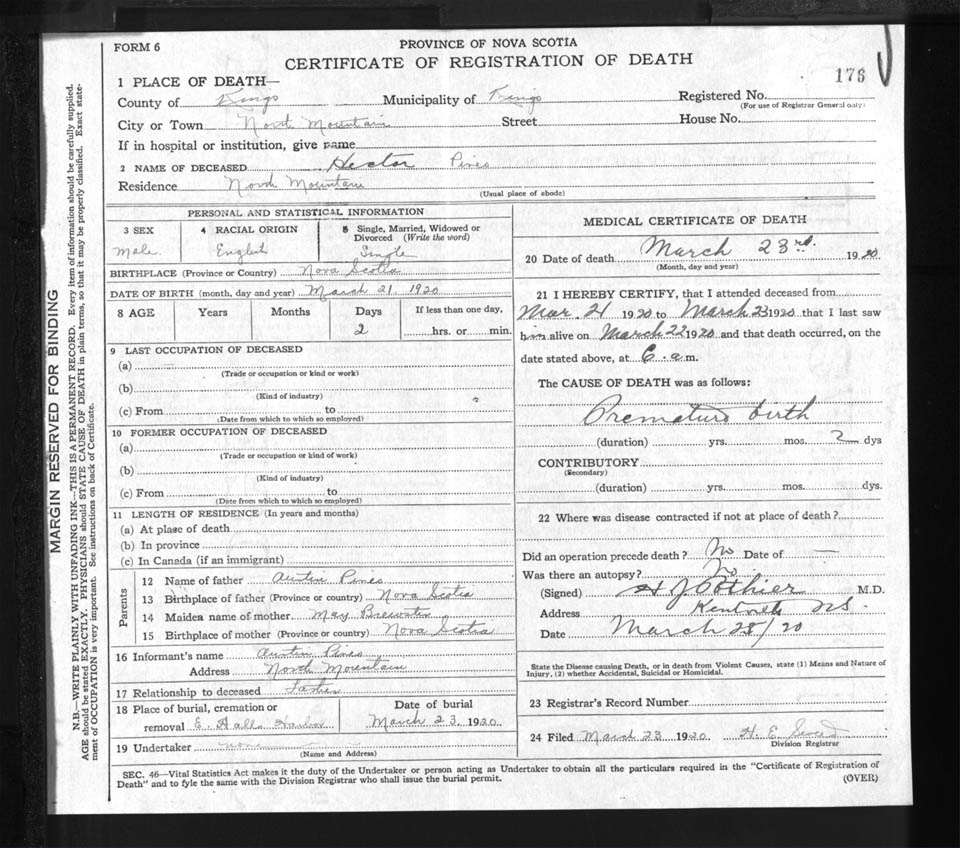 FORM 6
PROVINCE OF NOVA SCOTIA
CERTIFICATE OF REGISTRATION OF DEATH
176
1 PLACE OF DEATH—
County of Kings Municipality of Kings Registered No.
(For use of Registrar General only)
City or Town North Mountain Street House No.
If in hospital or institution, give name
2 NAME OF DECEASED Hector Pines
Residence North Mountain
(Usual place of abode)
PERSONAL AND STATISTICAL INFORMATION
3 SEX 4 RACIAL ORIGIN 5 Single, Married, Widowed or
Divorced (Write the word)
Male English Single
BIRTHPLACE (Province or Country) Nova Scotia
DATE OF BIRTH (month, day and year) March 21. 1920
8 AGE Years Months Days If less than one day,
2 hrs. or min.
9 LAST OCCUPATION OF DECEASED
(a)
(Trade or occupation or kind or work)
(b)
(Kind of industry)
(c) From to
(Date from which to which so employed)
10 FORMER OCCUPATION OF DECEASED
(a)
(Trade or occupation or kind of work)
(b)
(Kind of industry)
(c) From to
(Date from which to which so employed)
11 LENGTH OF RESIDENCE (In years and months)
(a) At place of death
(b) In province
(c) In Canada (if an immigrant)
Parents
12 Name of father Austin Pines
13 Birthplace of father (Province or country) Nova Scotia
14 Maiden name of mother May Brewster
15 Birthplace of mother (Province or country) Nova Scotia
16 Informant's name Austin Pines
Address North Mountain
17 Relationship to deceased Father
18 Place of burial, cremation or Date of burial
removal E. Halls Harbor March 23. 1920
19 Undertaker none
(Name and Address)
MEDICAL CERTIFICATE OF DEATH
20 Date of death March 23rd. 1920
(Month, day and year)
21 I HEREBY CERTIFY, that I attended deceased from
Mar. 21 1920 to March 23 1920 that I last saw
him alive on March 22 1920 and that death occurred, on the
date stated above, at 6. a.m.
The CAUSE OF DEATH was as follows:
Premature birth
(duration) yrs. mos. 2 dys
CONTRIBUTORY
(Secondary)
(duration) yrs. mos. dys.
22 Where was disease contracted if not at place of death?
Did an operation precede death? No Date of —
Was there an autopsy? No
(Signed) H J Pothier M.D.
Address Kentville NS.
Date March 25/20
State the Disease causing Death, or in death from Violent Causes, state (1) Means and Nature of
Injury, (2) whether Accidental, Suicidal or Homicidal.
23 Registrar's Record Number
24 Filed March 23 1920. H. E.
Division Registrar
SEC. 46—Vital Statistics Act makes it the duty of the Undertaker or person acting as Undertaker to obtain all the particulars required in the "Certificate of Registration of
Death" and to fyle the same with the Division Registrar who shall issue the burial permit.
(OVER)
MARGIN RESERVED FOR BINDING
N.B.—WRITE PLAINLY WITH UNFADING INK—THIS IS A PERMANENT RECORD. Every item of information should be carefully supplied.
AGE should be stated EXACTLY. PHYSICIANS should STATE CAUSE OF DEATH in plain terms, so that it may be properly classified. Exact state-
ment of OCCUPATION is very important. See instructions on back of Certificate.